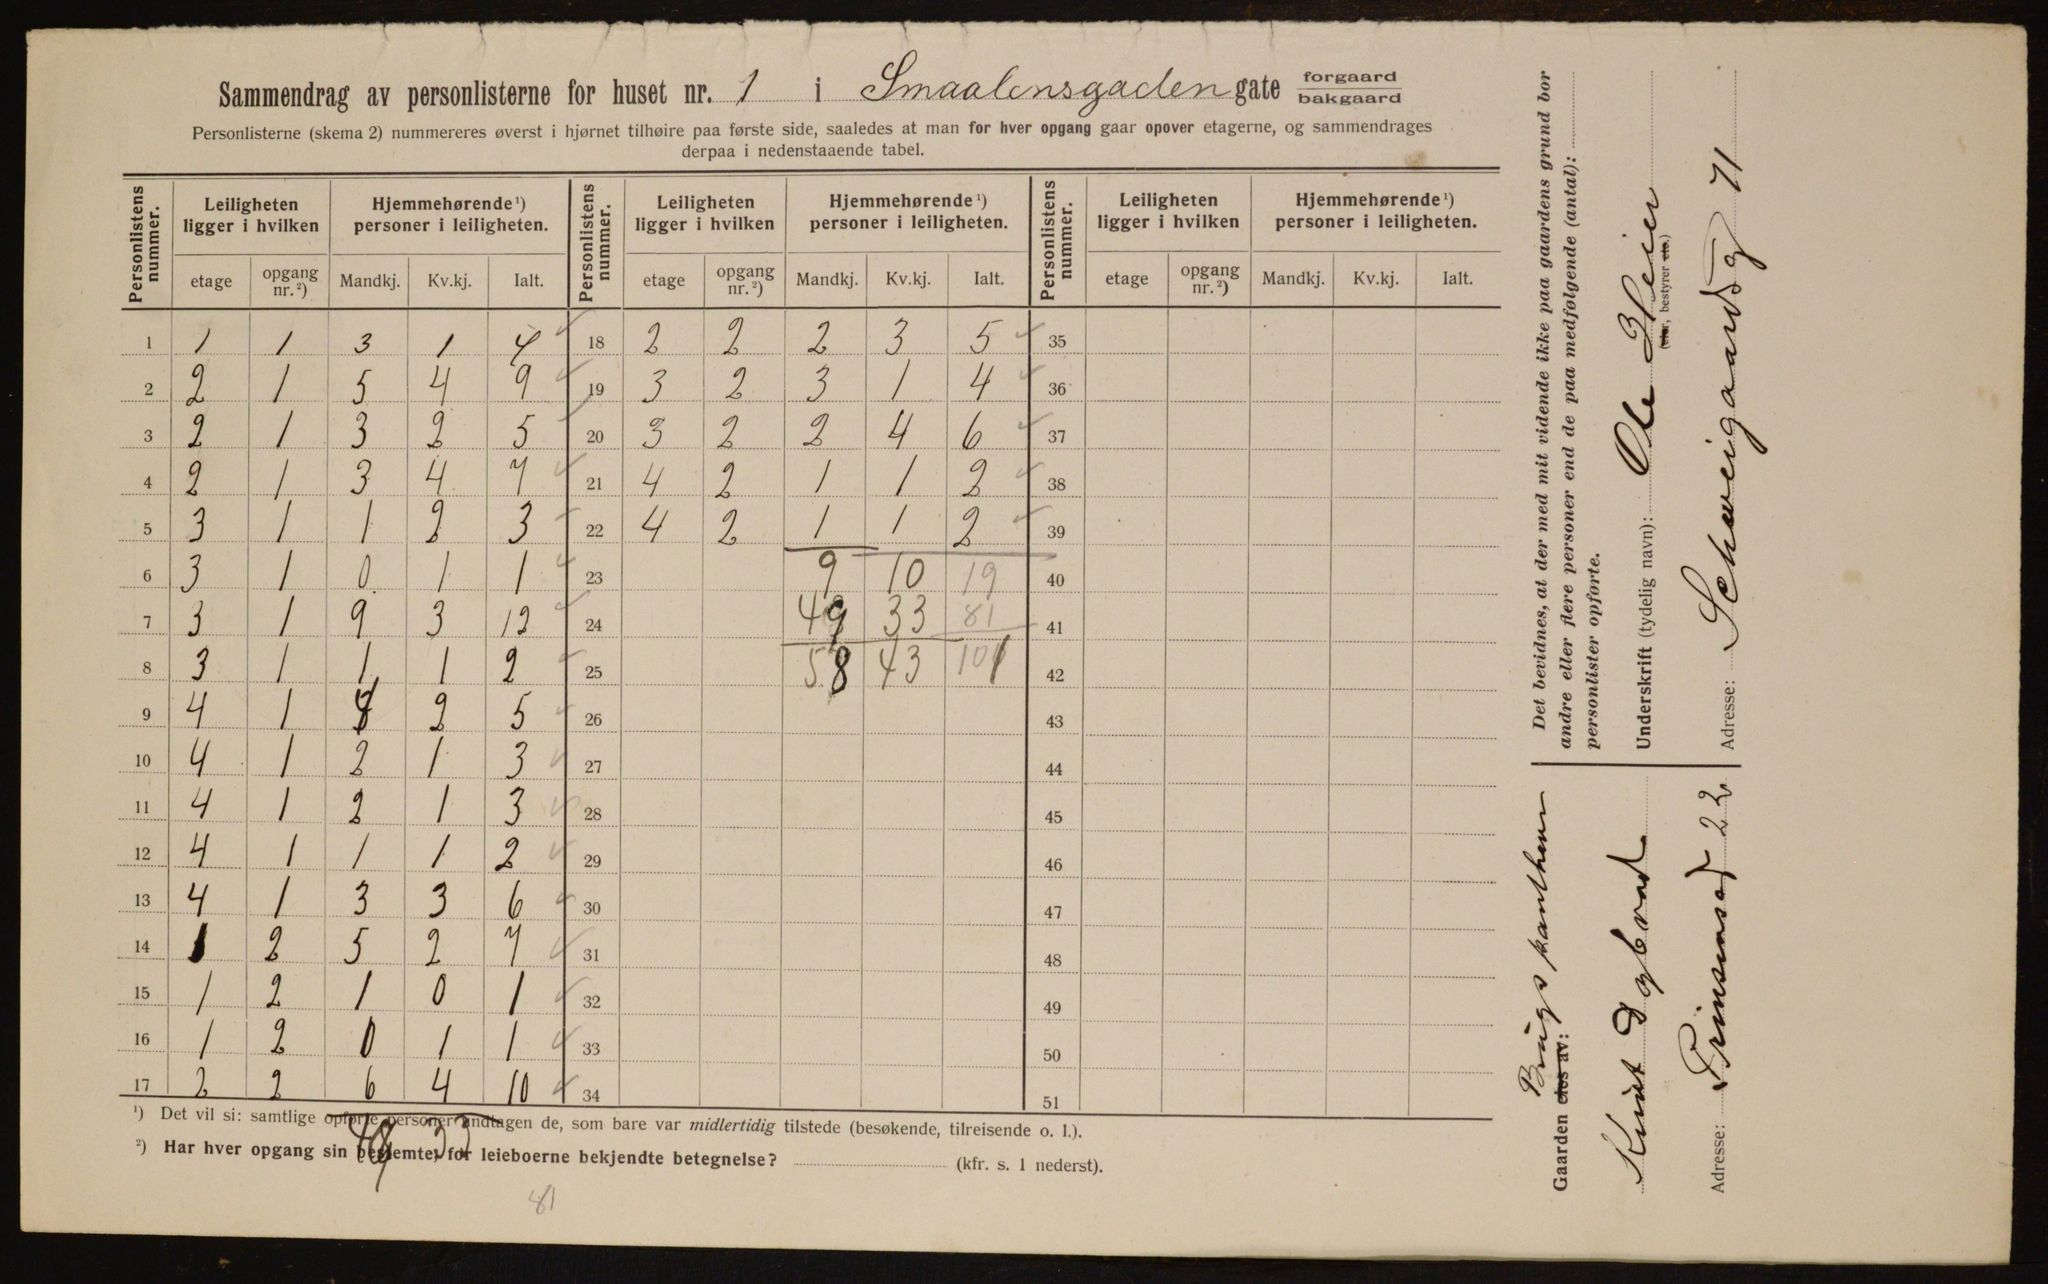 Sammendrag av personlisterne for huset nr. 1 i Smaalensgaden gate forgaard
bakgaard
Personlisterne (skema 2) nummereres øverst i hjørnet tilhøire paa første side, saaledes at man for hver opgang gaar opover etagerne, og sammendrages
derpaa i nedenstaaende tabel.
Personlistens nummer. Leiligheten ligger i hvilken Hjemmehørende ¹) personer i leiligheten. Personlistens nummer. Leiligheten ligger i hvilken Hjemmehørende ¹) personer i leiligheten. Personlistens nummer. Leiligheten ligger i hvilken Hjemmehørende ¹) personer i leiligheten.
etage opgang nr. ²) Mandkj. Kv.kj. Ialt. etage opgang nr. ²) Mandkj. Kv.kj. Ialt. etage opgang nr. ²) Mandkj. Kv.kj. Ialt.
1 1 1 3 1 4 18 2 2 2 3 5 35
2 2 1 5 4 9 19 3 2 3 1 4 36
3 2 1 3 2 5 20 3 2 2 4 6 37
4 2 1 3 4 7 21 4 2 1 1 2 38
5 3 1 1 2 3 22 4 2 1 1 2 39
6 3 1 0 1 1 23 9 10 19 40
7 3 1 9 3 12 24 49 33 81 41
8 3 1 1 1 2 25 58 43 101 42
9 4 1 2 5 26 43
10 4 1 2 1 3 27 44
11 4 1 2 1 3 28 45
12 4 1 1 1 2 29 46
13 4 1 3 3 6 30 47
14 1 2 5 2 7 31 48
15 1 2 1 0 1 32 49
16 1 2 0 1 1 33 50
17 2 2 6 4 10 34 51
¹) Det vil si: samtlige opførte personer undtagen de, som bare var midlertidig tilstede (besøkende, tilreisende o. l.).
49 33
²) Har hver opgang sin bestemte, for leieboerne bekjendte betegnelse? (kfr. s. 1 nederst).
81
Det bevidnes, at der med mit vidende ikke paa gaardens grund bor
andre eller flere personer end de paa medfølgende (antal):
personlister opførte.
Underskrift (tydelig navn): Ole
(eier, bestyrer etc.)
Adresse: Schweigaardsg 71
Gaarden eies av:
Knut
Adresse: Prinsensgt 22